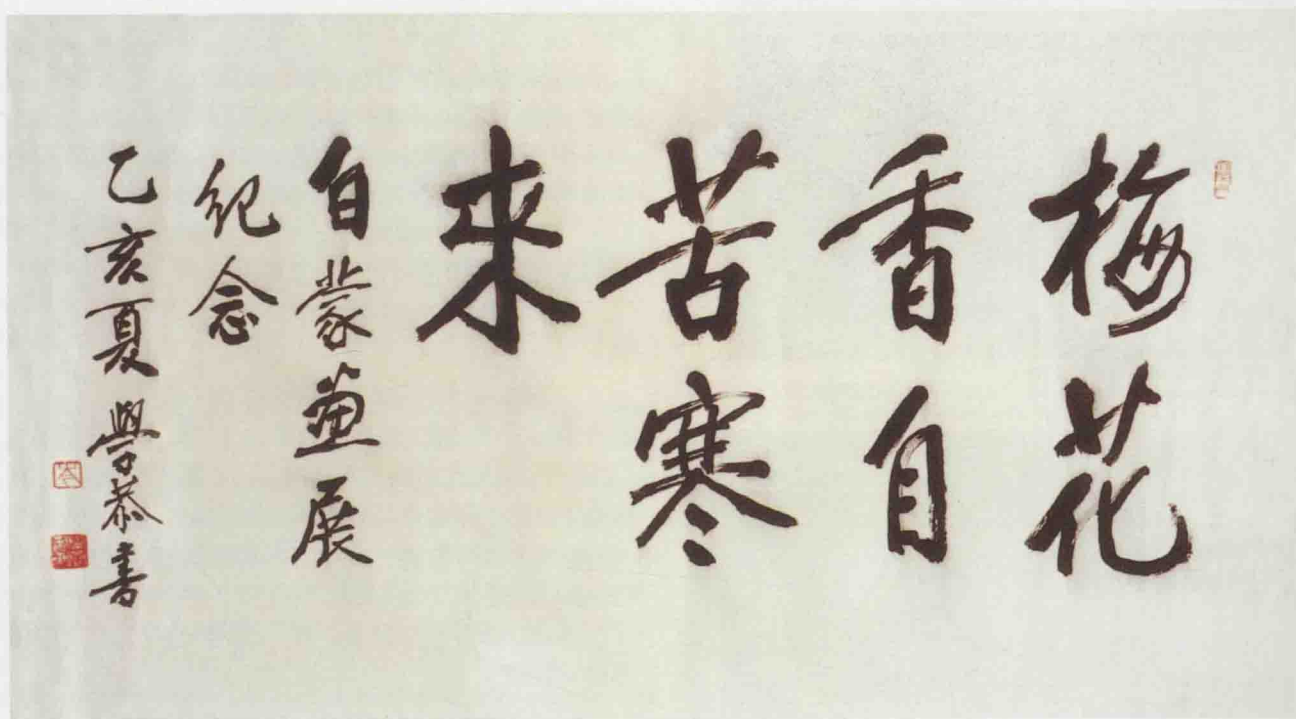 梅花
香自
苦寒
來
白蒙畫展
紀念
乙亥夏學恭書